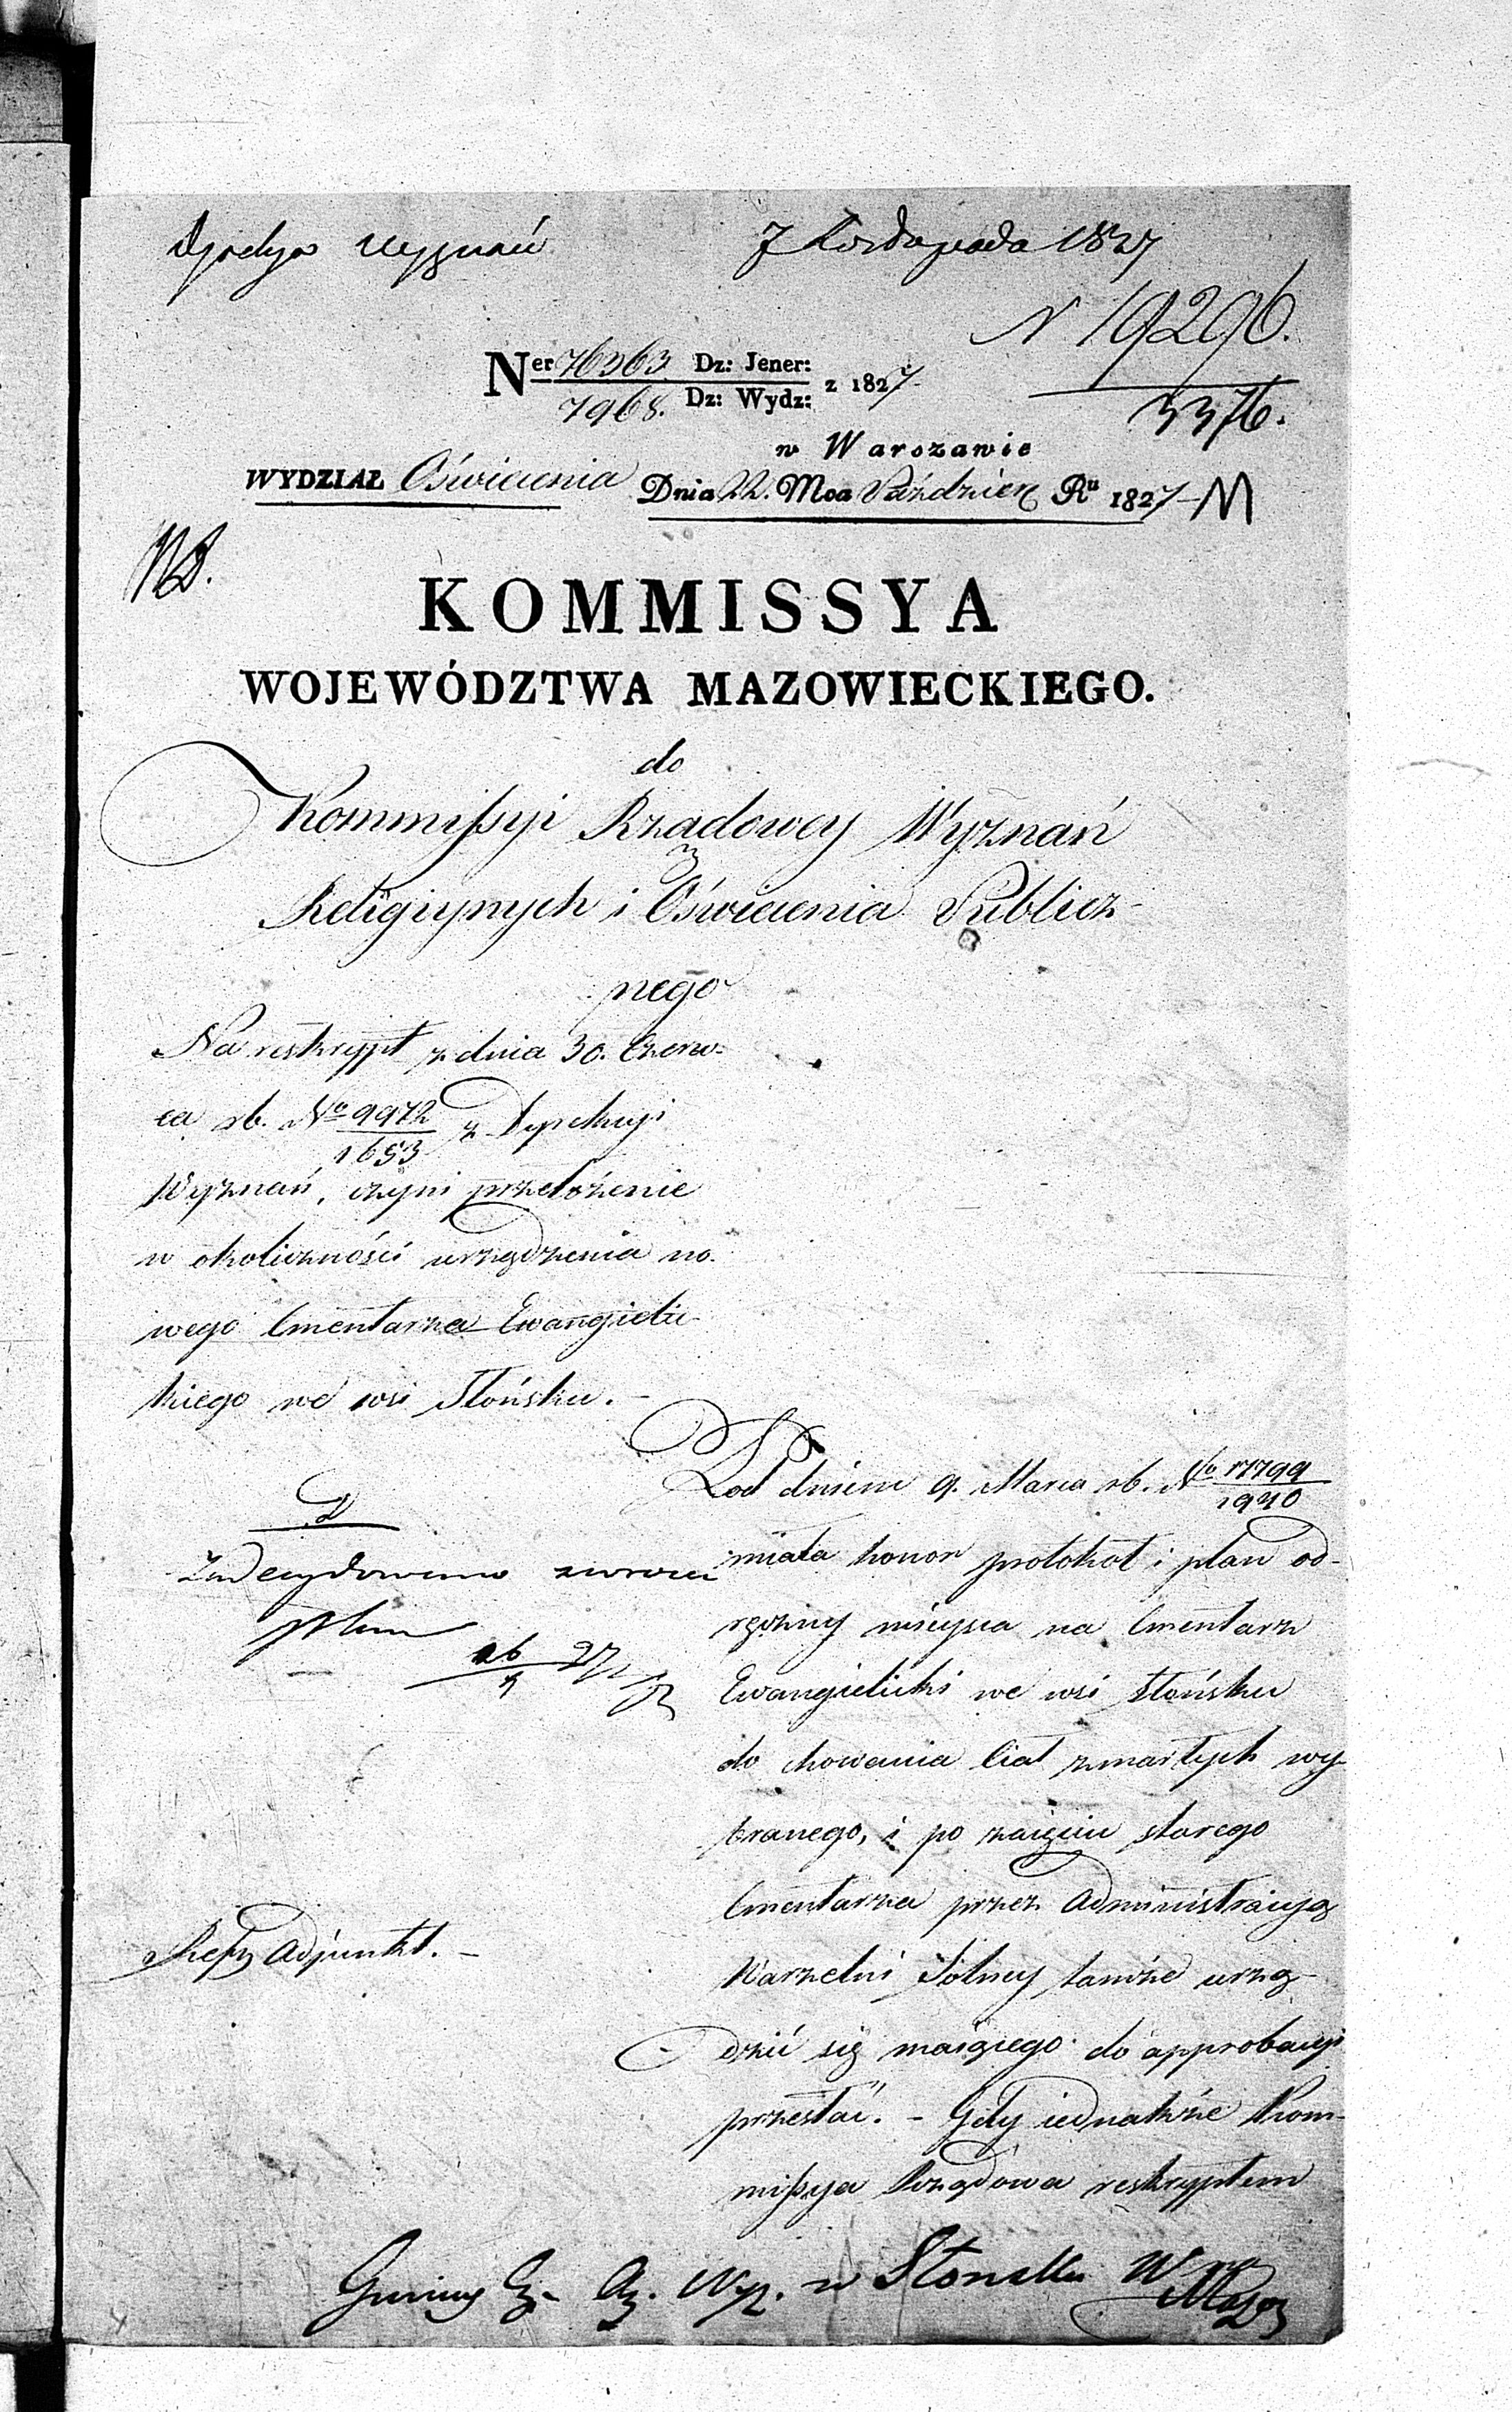 Dyrekcya Wyznań 7 Listopada 1827
N 19296.
3376.
Ner 76363 Dz: Jener: z 1827
7968. Dz: Wydz:
w Warszawie
WYDZIAŁ Oświecenia Dnia 22. Mca Paździer Ru 1827
KOMMISSYA
WOJEWÓDZTWA MAZOWIECKIEGO.
do
Kommissyi Rządowey Wyznań
Religiynych i Oświecenia Publicz-
nego
Na reskrypt z dnia 30. Czerw-
ca rb. No 9972/1653 z Dyrekcyi
Wyznań, czyni przełożenie
w okoliczności urządzenia no-
wego Cmentarza Ewangielic-
kiego we wsi Słońsku.
Pod dniem 9. Marca rb. No 17799/1940
miała honor protokół i plan od-
ręczny mieysca na Cmentarz
Ewangielicki we wsi Słońsku
do chowania ciał zmarłych wy-
branego, i po zaięciu starego
Cmentarza przez Administracyą
Warzelni Solney tamże urzą-
dzić się maiącego do approbacyi
przesłać. - Gdy iednakże Kom-
missya Rządowa reskryptem
Zadecydowano zwrócić
plan
Adjunkt. -
Gminy Ew. Wyz. w Słonsku W.